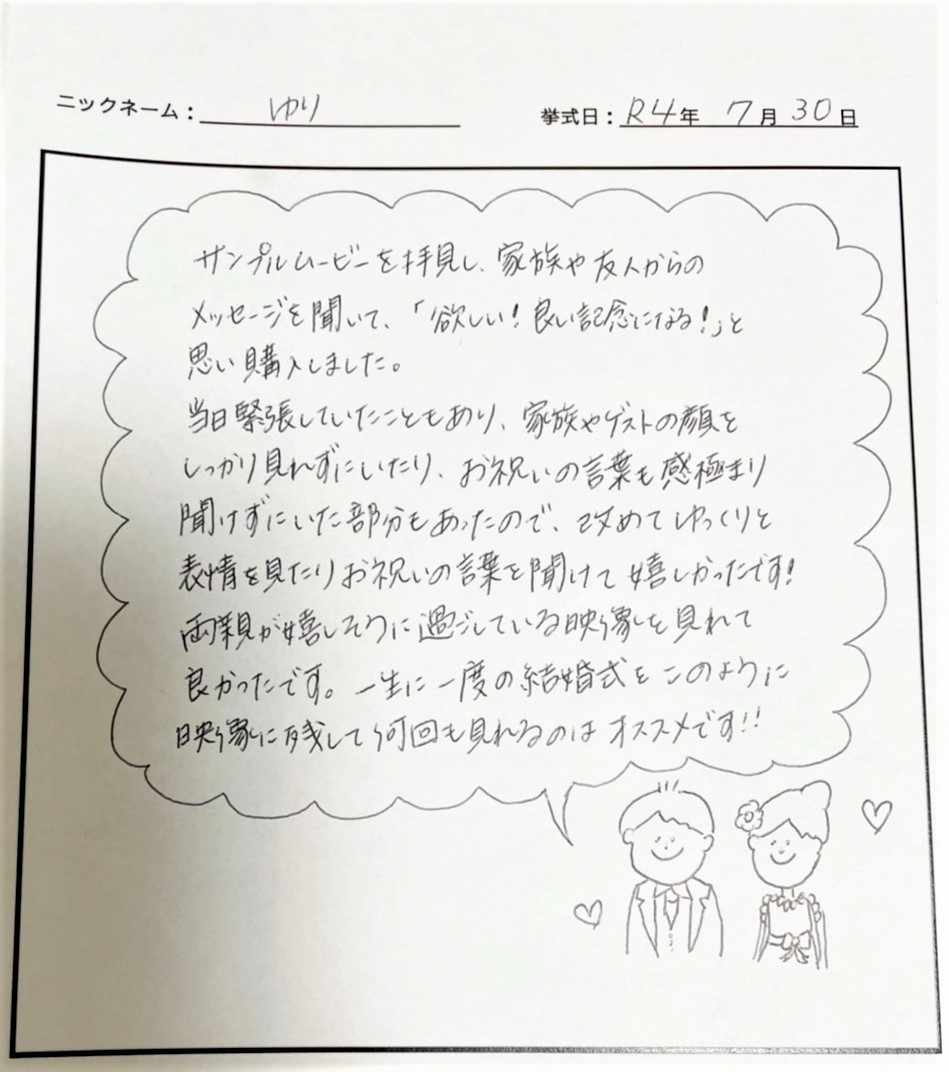 ニックネーム: ゆり 挙式日: R4年 7月30日
サンプルムービーを拝見し、家族や友人からの
メッセージを聞いて、「欲しい!良い記念になる!」と
思い購入しました。
当日緊張していたこともあり、家族やゲストの顔を
しっかり見れずにいたり、お祝いの言葉も感極まり
聞けずにいた部分もあったので、改めてゆっくりと
表情を見たりお祝いの言葉を聞けて嬉しかったです!
両親が嬉しそうに過ごしている映像を見れて
良かったです。一生に一度の結婚式をこのように
映像に残して何回も見れるのはオススメです!!